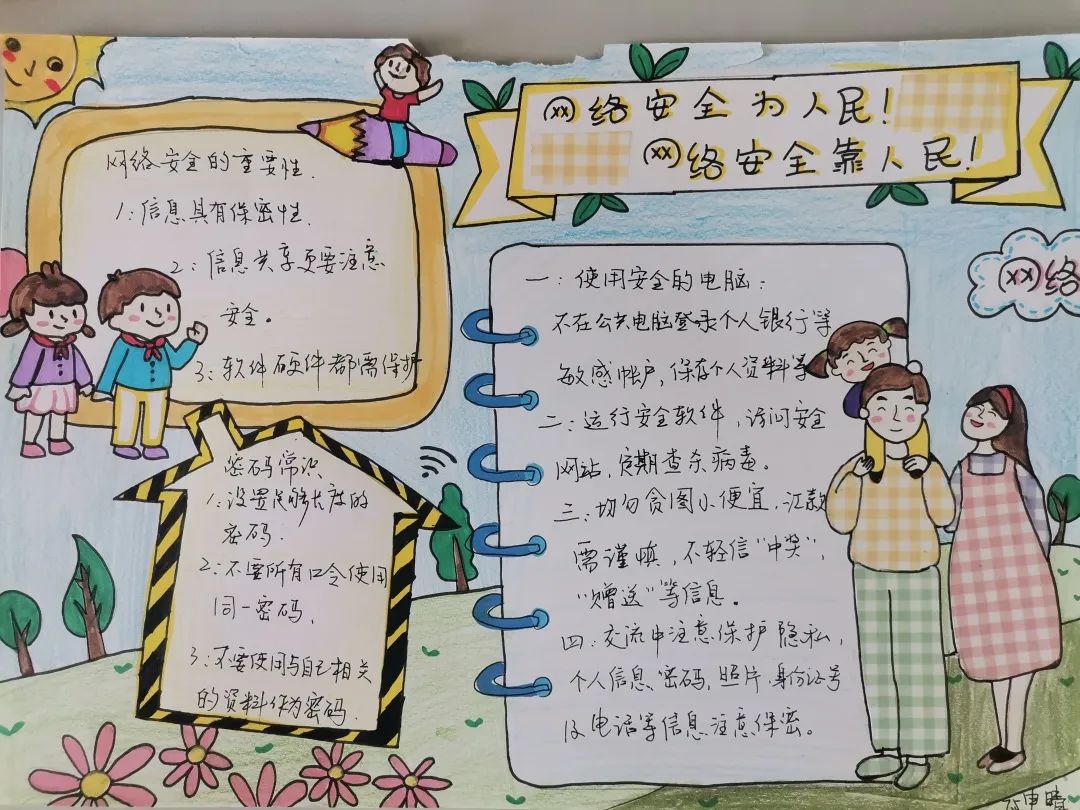 网络安全为人民！
网络安全靠人民！
网络安全的重要性．
1：信息具有保密性．
2：信息共享更要注意
安全。
3：软件硬件都需保护
密码常识
1：设置足够长度的
密码．
2：不要所有口令使用
同一密码，
3：不要使用与自己相关
的资料作为密码．
一：使用安全的电脑：
不在公共电脑登录个人银行等
敏感帐户，保存个人资料等
二：运行安全软件，访问安全
网站，定期查杀病毒。
三：切勿贪图小便宜，汇款
需谨慎，不轻信“中奖”，
“赠送”等信息。
四：交流中注意保护隐私，
个人信息，密码，照片，身份证号
及电话等信息注意保密。
网络
申晴